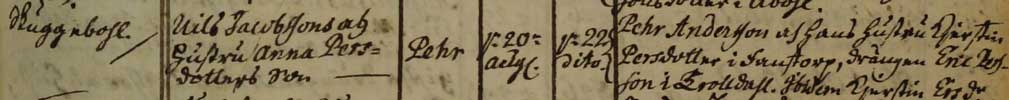 Skuggebohl. Nils Jacobssons och Hustru Anna Persdotters Son Pehr
d. 20 Aug. d. 22 dito
Pehr Andersson och hans Hustru Kjerstin
Persdotter i Fanstorp, Drängen Eric Pers-
son i Trolldahl. Ibidem Kjerstin Ersdr